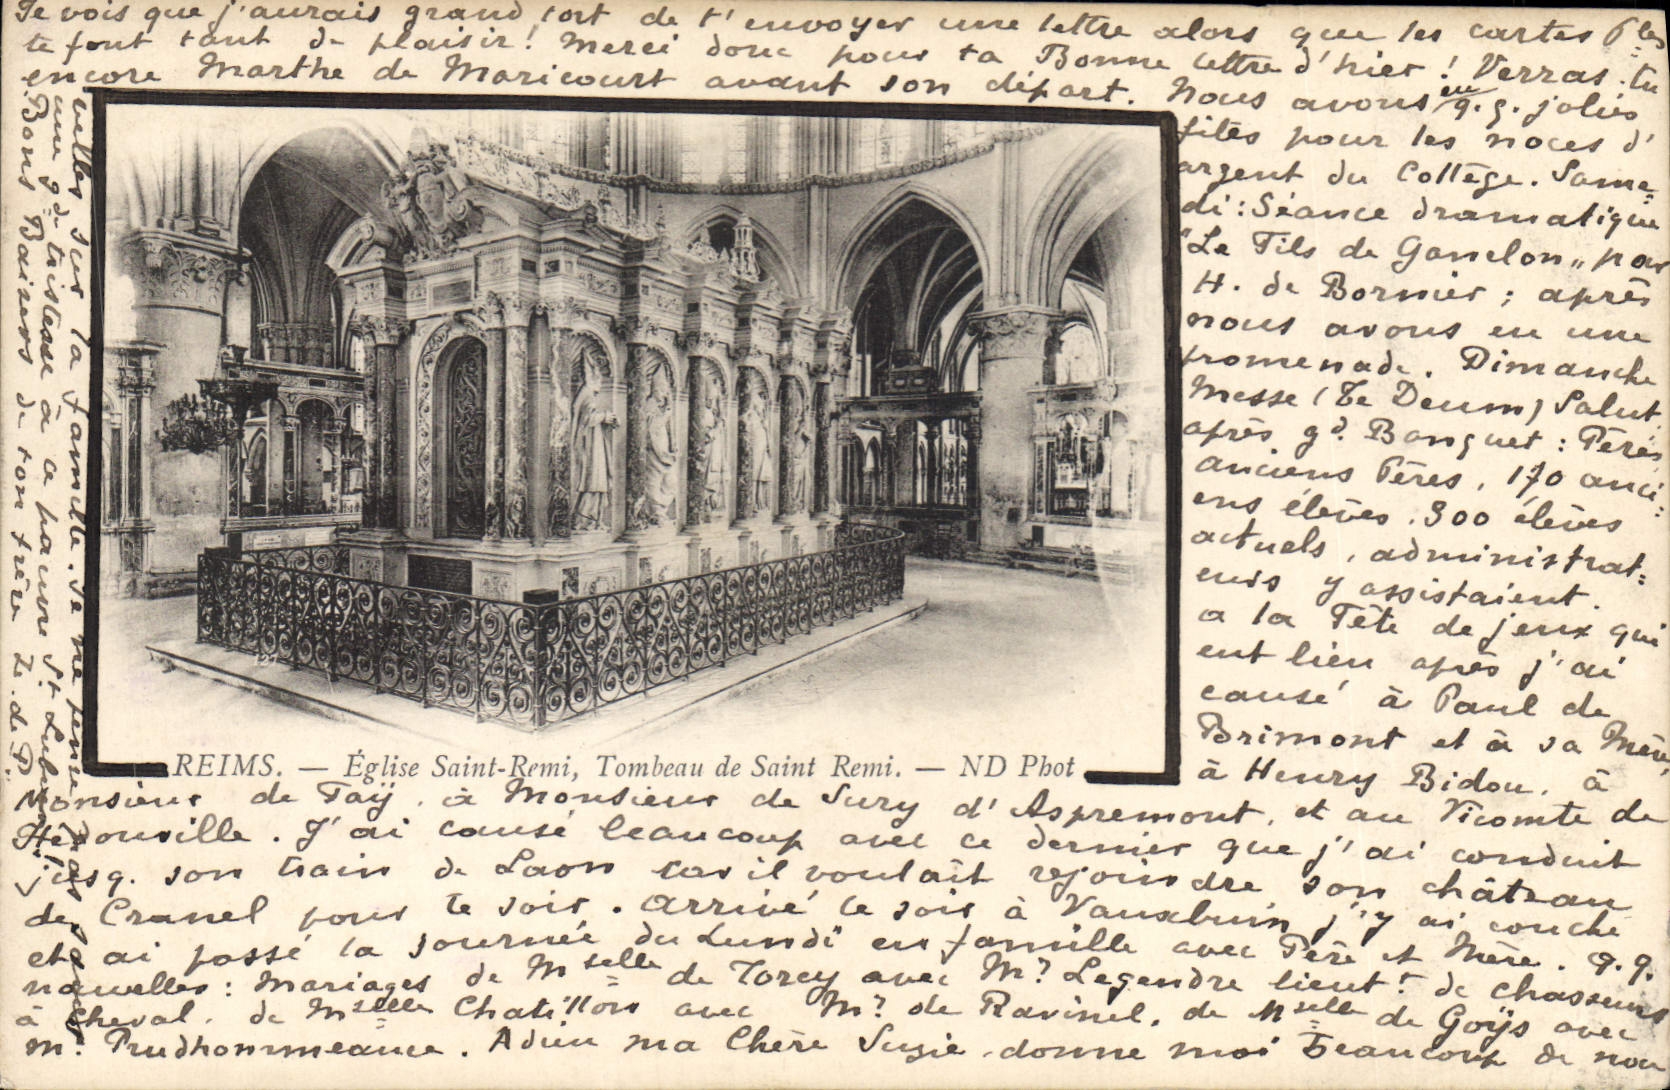 Je vois que j'aurais grand tort de t'envoyer une lettre alors que les cartes Ples
te font tant de plaisir! Merci donc pour ta Bonne lettre d'hier! Verras-tu
encore Marthe de Maricourt avant son départ. Nous avons eu q.q. jolies
fêtes pour les noces d'
argent du Collège. Same-
di: Séance dramatique
"Le Fils de Ganelon" par
H. de Bornier; après
nous avons eu une
promenade. Dimanche
Messe (Te Deum) Salut.
après gd. Banquet: Pères,
anciens Pères, 170 anci-
ens élèves, 300 élèves
actuels, administrat-
eurs y assistaient.
a la Fête de jeux qui
eut lieu après j'ai
causé à Paul de
Brimont et à sa Mère,
à Henry Bidou, à
REIMS. — Église Saint-Remi, Tombeau de Saint Remi. — ND Phot
127
Monsieur de Faÿ, à Monsieur de Sury d'Aspremont, et au Vicomte de
Hédouville. J'ai causé beaucoup avec ce dernier que j'ai conduit
jusq. son train de Laon car il voulait rejoindre son château
de Cranel pour le soir. Arrivé le soir à Vauxbuin j'y ai couché
et ai passé la journée du Lundi en famille avec Père et Mère. q.q.
nouvelles: Mariages de Mselle de Torcy avec Mr. Legendre lieut. de chasseurs
à cheval, de Mselle Chatillon avec Mr. de Ravinel, de Mselle de Goÿs avec
Mr. Prudhommeaux. Adieu ma Chère Suzie, donne moi beaucoup de nou
velles sur la famille. Je ne pense pas sans
une gde tristesse à ce pauvre St. Lubin!
Bons Baisers de ton frère Z. de P.